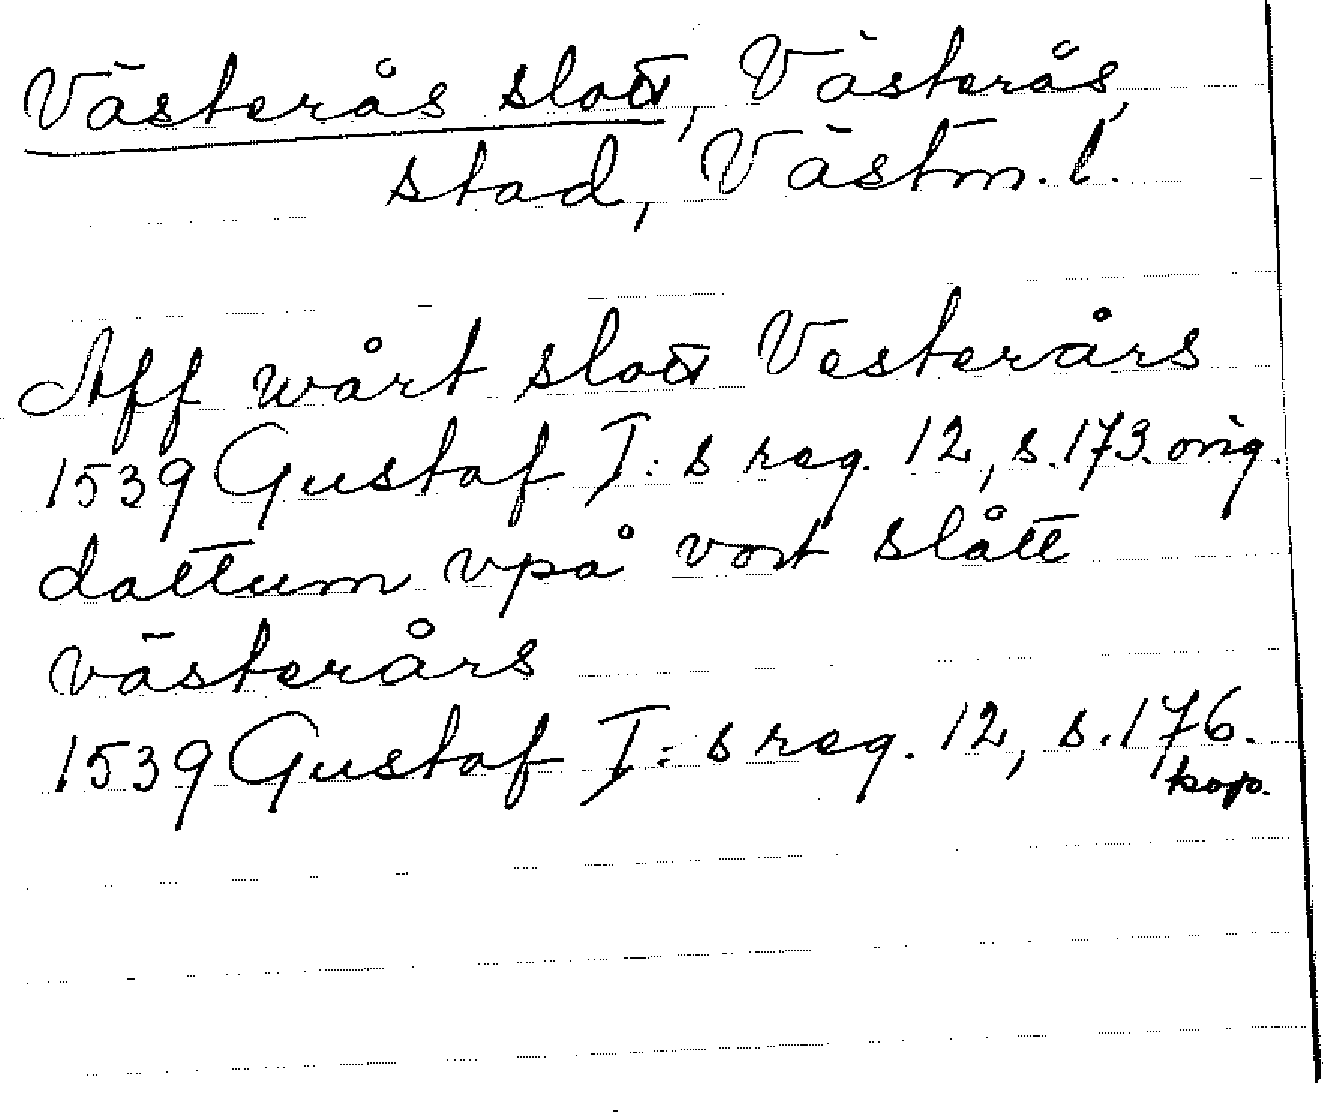 Västerås slott, Västerås,
stad, Västm. l.
Aff wårt slott Vesterårs
1539 Gustaf I:s reg. 12, s. 173. orig.
dattum vpå vort slått
västerårs
1539 Gustaf I:s reg. 12, s. 176.
kop.